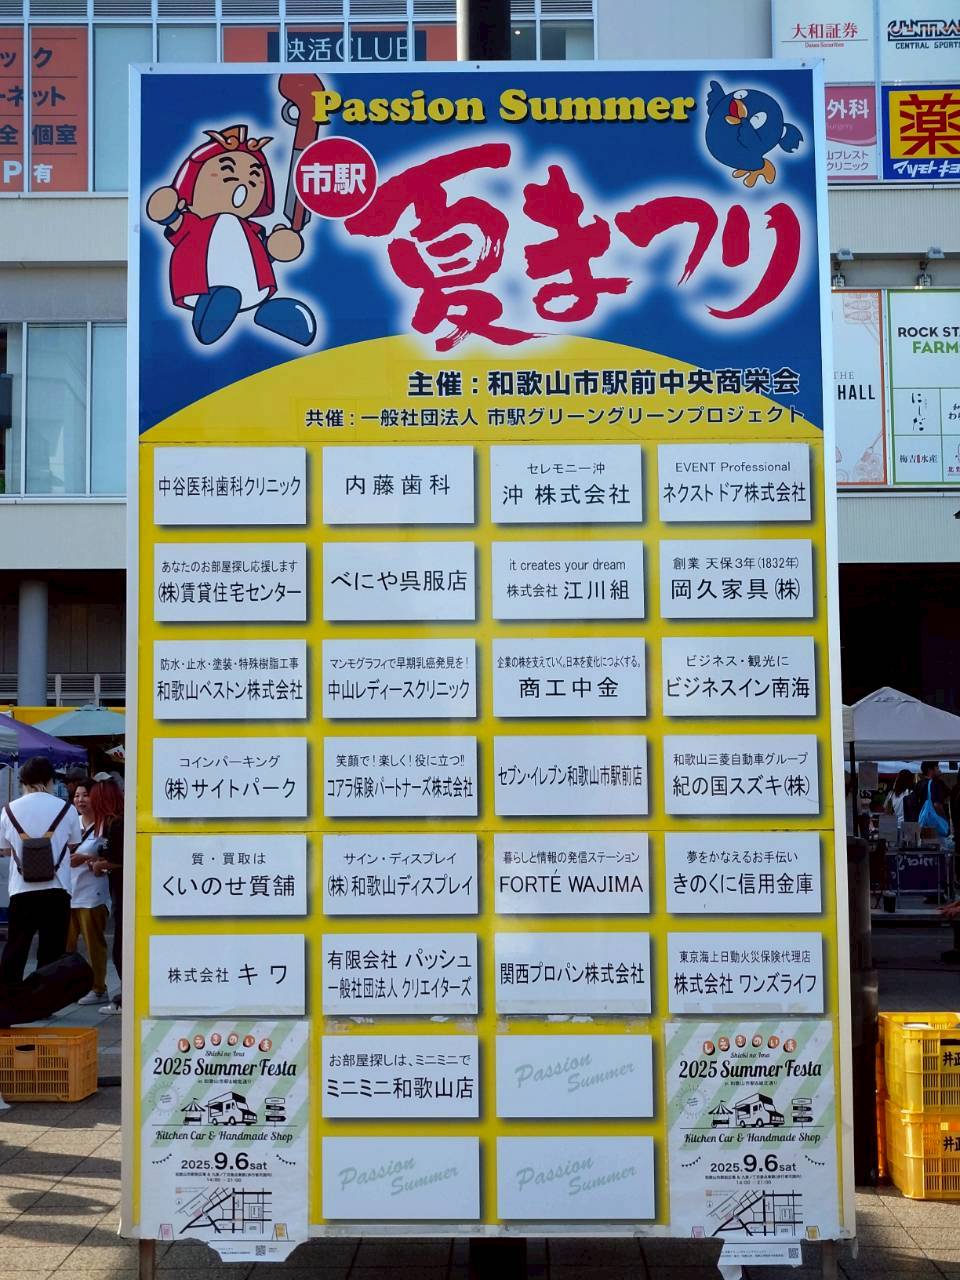 快活CLUB
ック
ーネット
全 個室
P 有
大和証券
Daiwa Securities
CENTRAL SPORTS
外科
Surgery
クリニック
薬
ROCK STA
FARM
THE
HALL
にしだ
梅吉水産
Passion Summer
市駅
夏まつり
主催：和歌山市駅前中央商栄会
共催：一般社団法人 市駅グリーングリーンプロジェクト
中谷医科歯科クリニック
内藤歯科
セレモニー沖
沖 株式会社
EVENT Professional
ネクストドア株式会社
あなたのお部屋探し応援します
(株)賃貸住宅センター
べにや呉服店
it creates your dream
株式会社 江川組
創業 天保3年(1832年)
岡久家具(株)
防水・止水・塗装・特殊樹脂工事
和歌山ベストン株式会社
マンモグラフィで早期乳癌発見を!
中山レディースクリニック
企業の株を支えていく。日本を変化につよくする。
商工中金
ビジネス・観光に
ビジネスイン南海
コインパーキング
(株)サイトパーク
笑顔で!楽しく!役に立つ!!
コアラ保険パートナーズ株式会社
セブン-イレブン和歌山市駅前店
和歌山三菱自動車グループ
紀の国スズキ(株)
質・買取は
くいのせ質舗
サイン・ディスプレイ
(株)和歌山ディスプレイ
暮らしと情報の発信ステーション
FORTÉ WAJIMA
夢をかなえるお手伝い
きのくに信用金庫
株式会社 キワ
有限会社 パッシュ
一般社団法人 クリエイターズ
関西プロパン株式会社
東京海上日動火災保険代理店
株式会社 ワンズライフ
しえきのいま
Shieki no Ima
2025 Summer Festa
in 和歌山市駅&城北通り
Kitchen Car & Handmade Shop
2025.9.6sat
14:00 - 21:00
お部屋探しは、ミニミニで
ミニミニ和歌山店
Passion
Summer
しえきのいま
Shieki no Ima
2025 Summer Festa
in 和歌山市駅&城北通り
Kitchen Car & Handmade Shop
2025.9.6sat
14:00 - 21:00
Passion
Summer
Passion
Summer